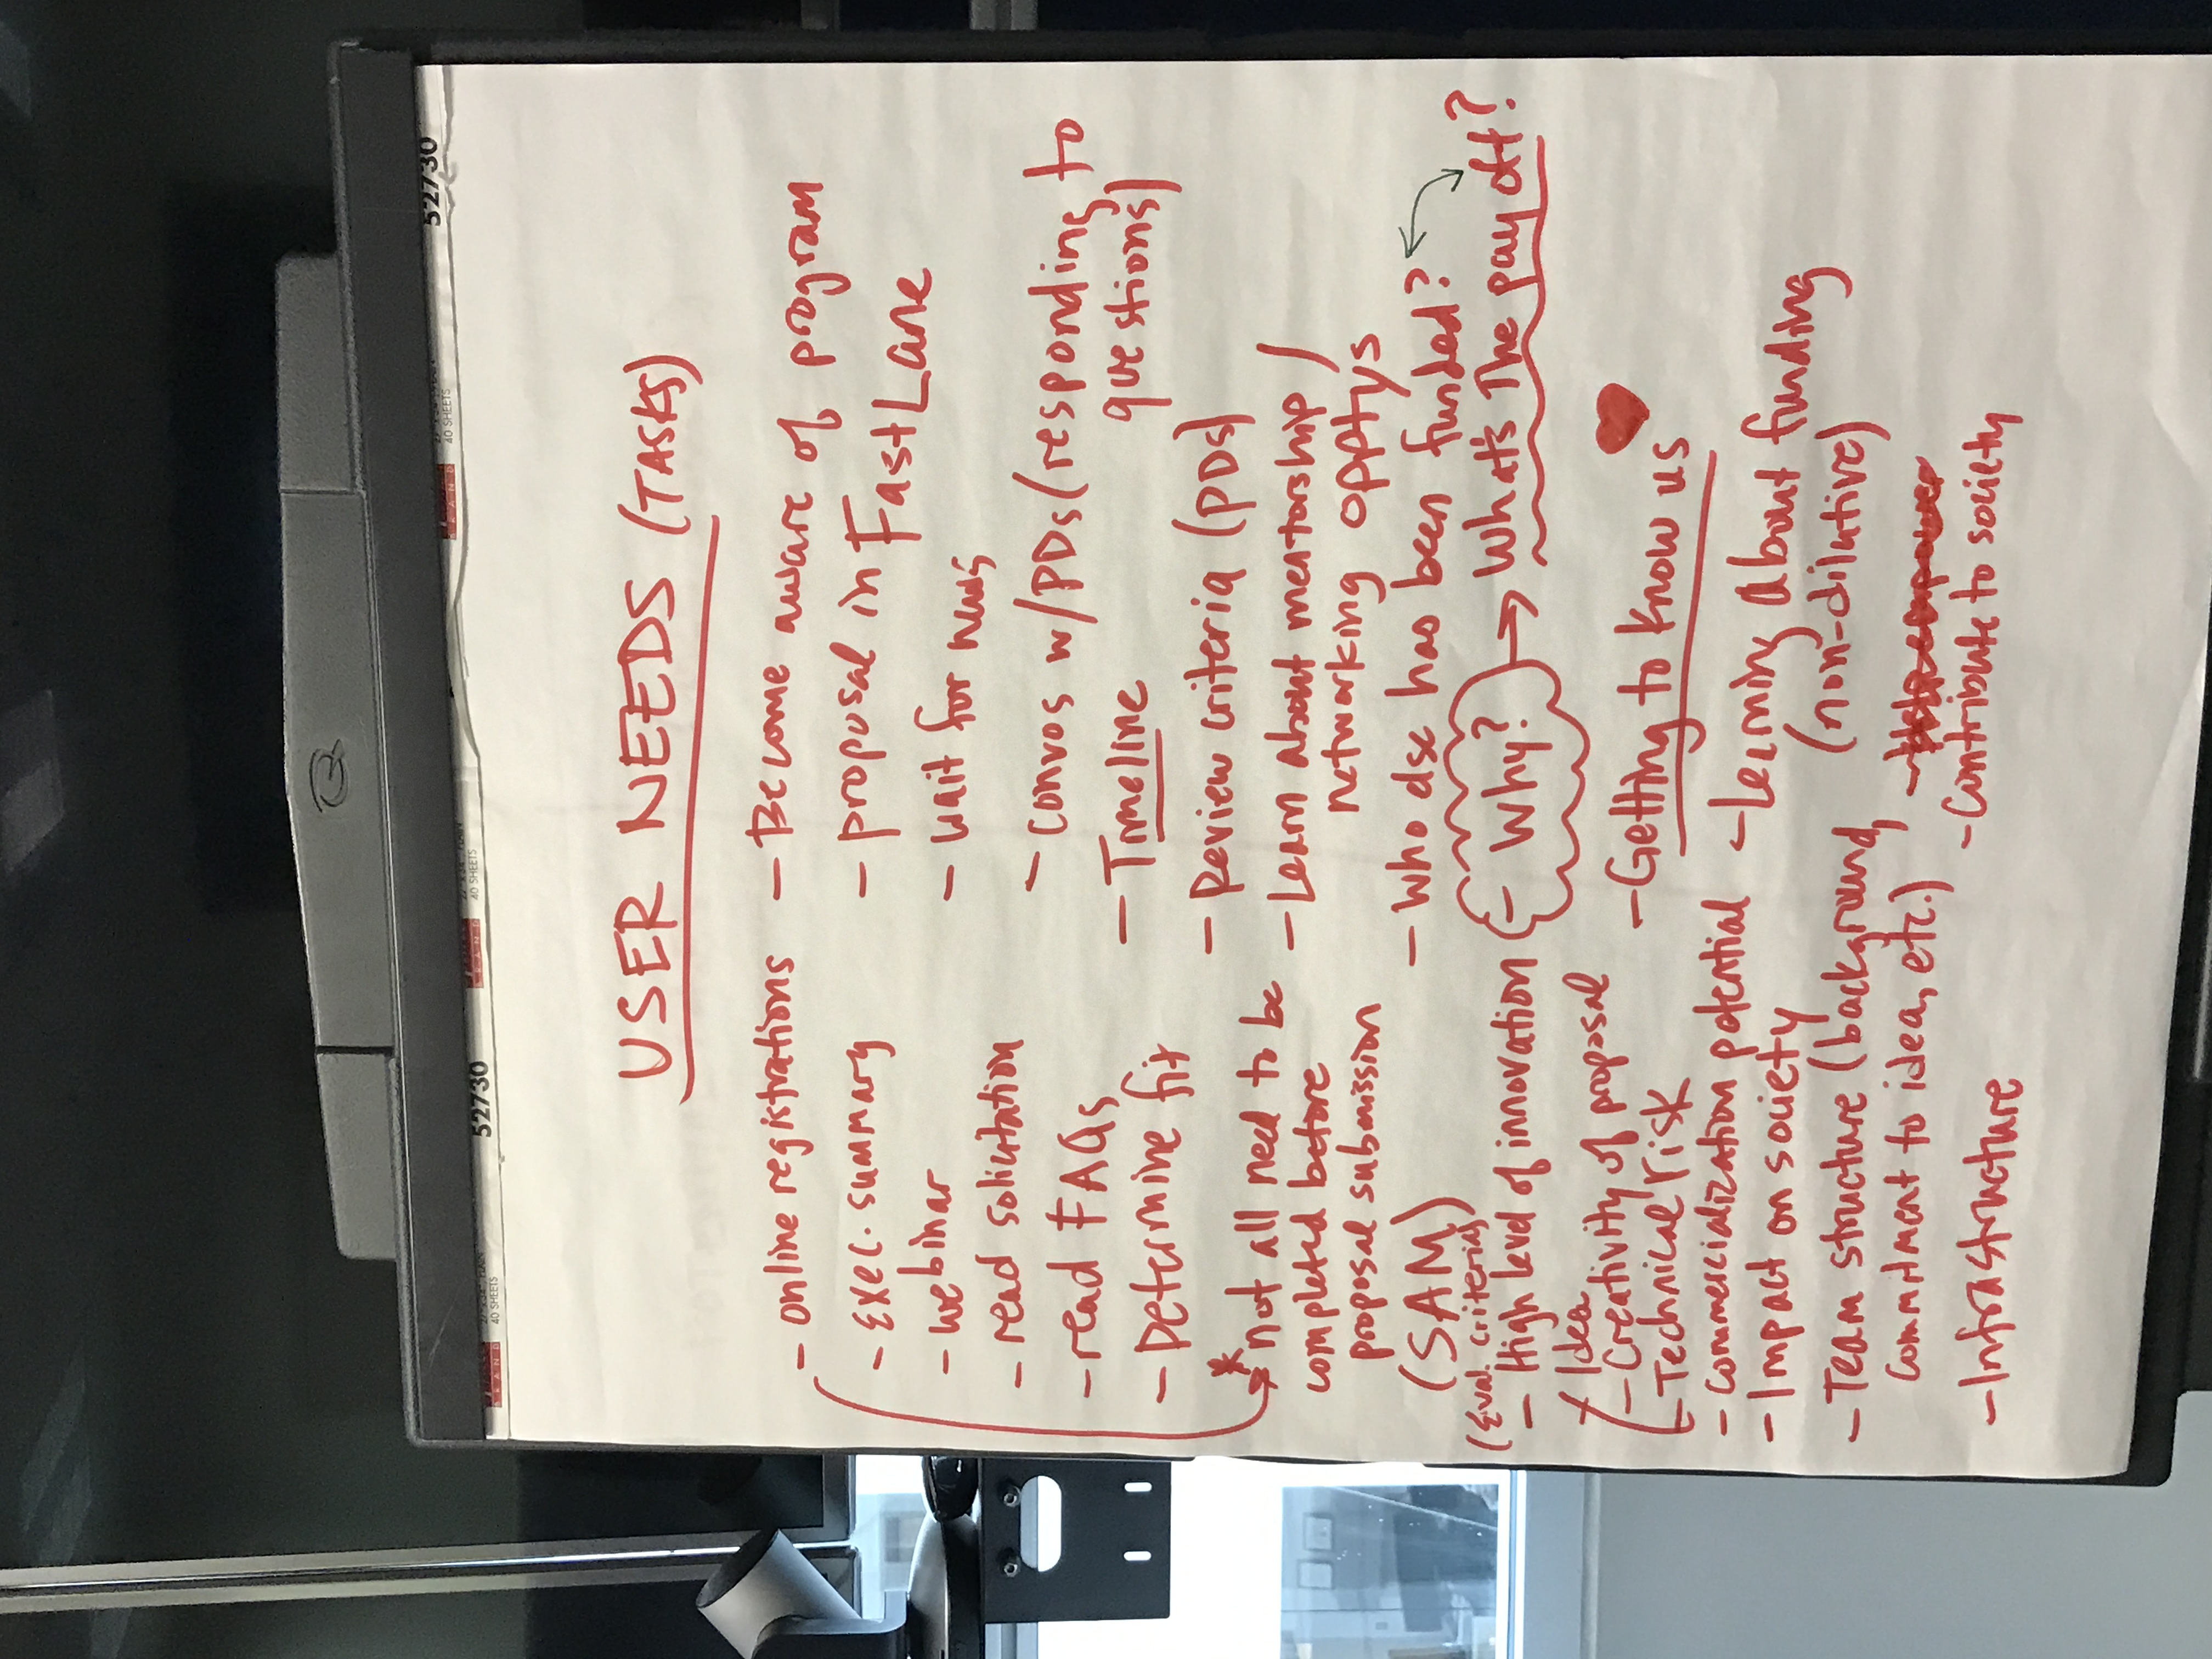 52730
40 SHEETS
BRAND
40 SHEETS
40 SHEETS
52730
USER NEEDS (TASKS)
- online registrations
- Exec. summary
- webinar
- read solicitation
- read FAQs
- Determine fit
* not all need to be
completed before
proposal submission
(SAM)
(Eval. criteria)
- High level of innovation
Idea
- Creativity of proposal
- Technical risk
- commercialization potential
- Impact on society
- Team structure (background,
commitment to idea, etc.)
- Infrastructure
- Become aware of program
- proposal in FastLane
- wait for news
- convos w/PDs (responding to
questions)
- Timeline
- Review criteria (PDs)
- Learn about mentorship /
networking opptys
- Who else has been funded?
- Why? → What's The pay off?
- Getting to know us
- Learning about funding
(non-dilutive)
- Contribute to society